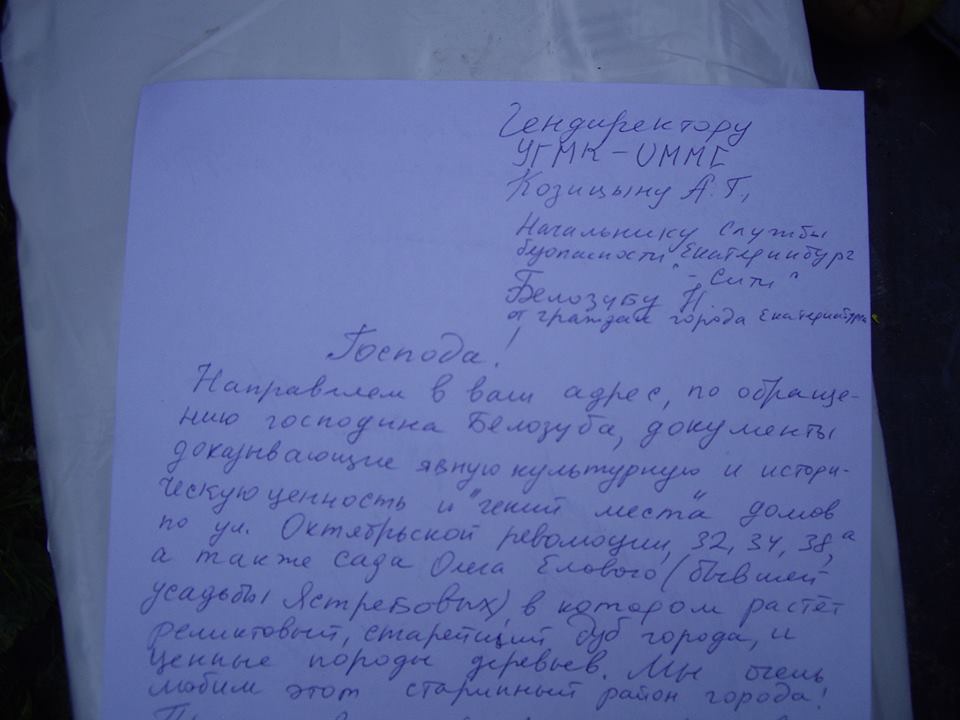 Гендиректору
УГМК-UMMC
Козицыну А.Г.,
Начальнику Службы
безопасности "Екатеринбург
-Сити"
Белозубу Н.
от граждан города Екатеринбурга
Господа!
Направляем в ваш адрес, по обраще-
нию господина Белозуба, документы
доказывающие явную культурную и истори-
ческую ценность и "гений места" домов
по ул. Октябрьской революции, 32, 34, 38а,
а также сада Олега Елового (бывшей
усадьбы Ястребовых), в котором растёт
реликтовый, старейший дуб города, и
ценные породы деревьев. Мы очень
любим этот старинный район города!